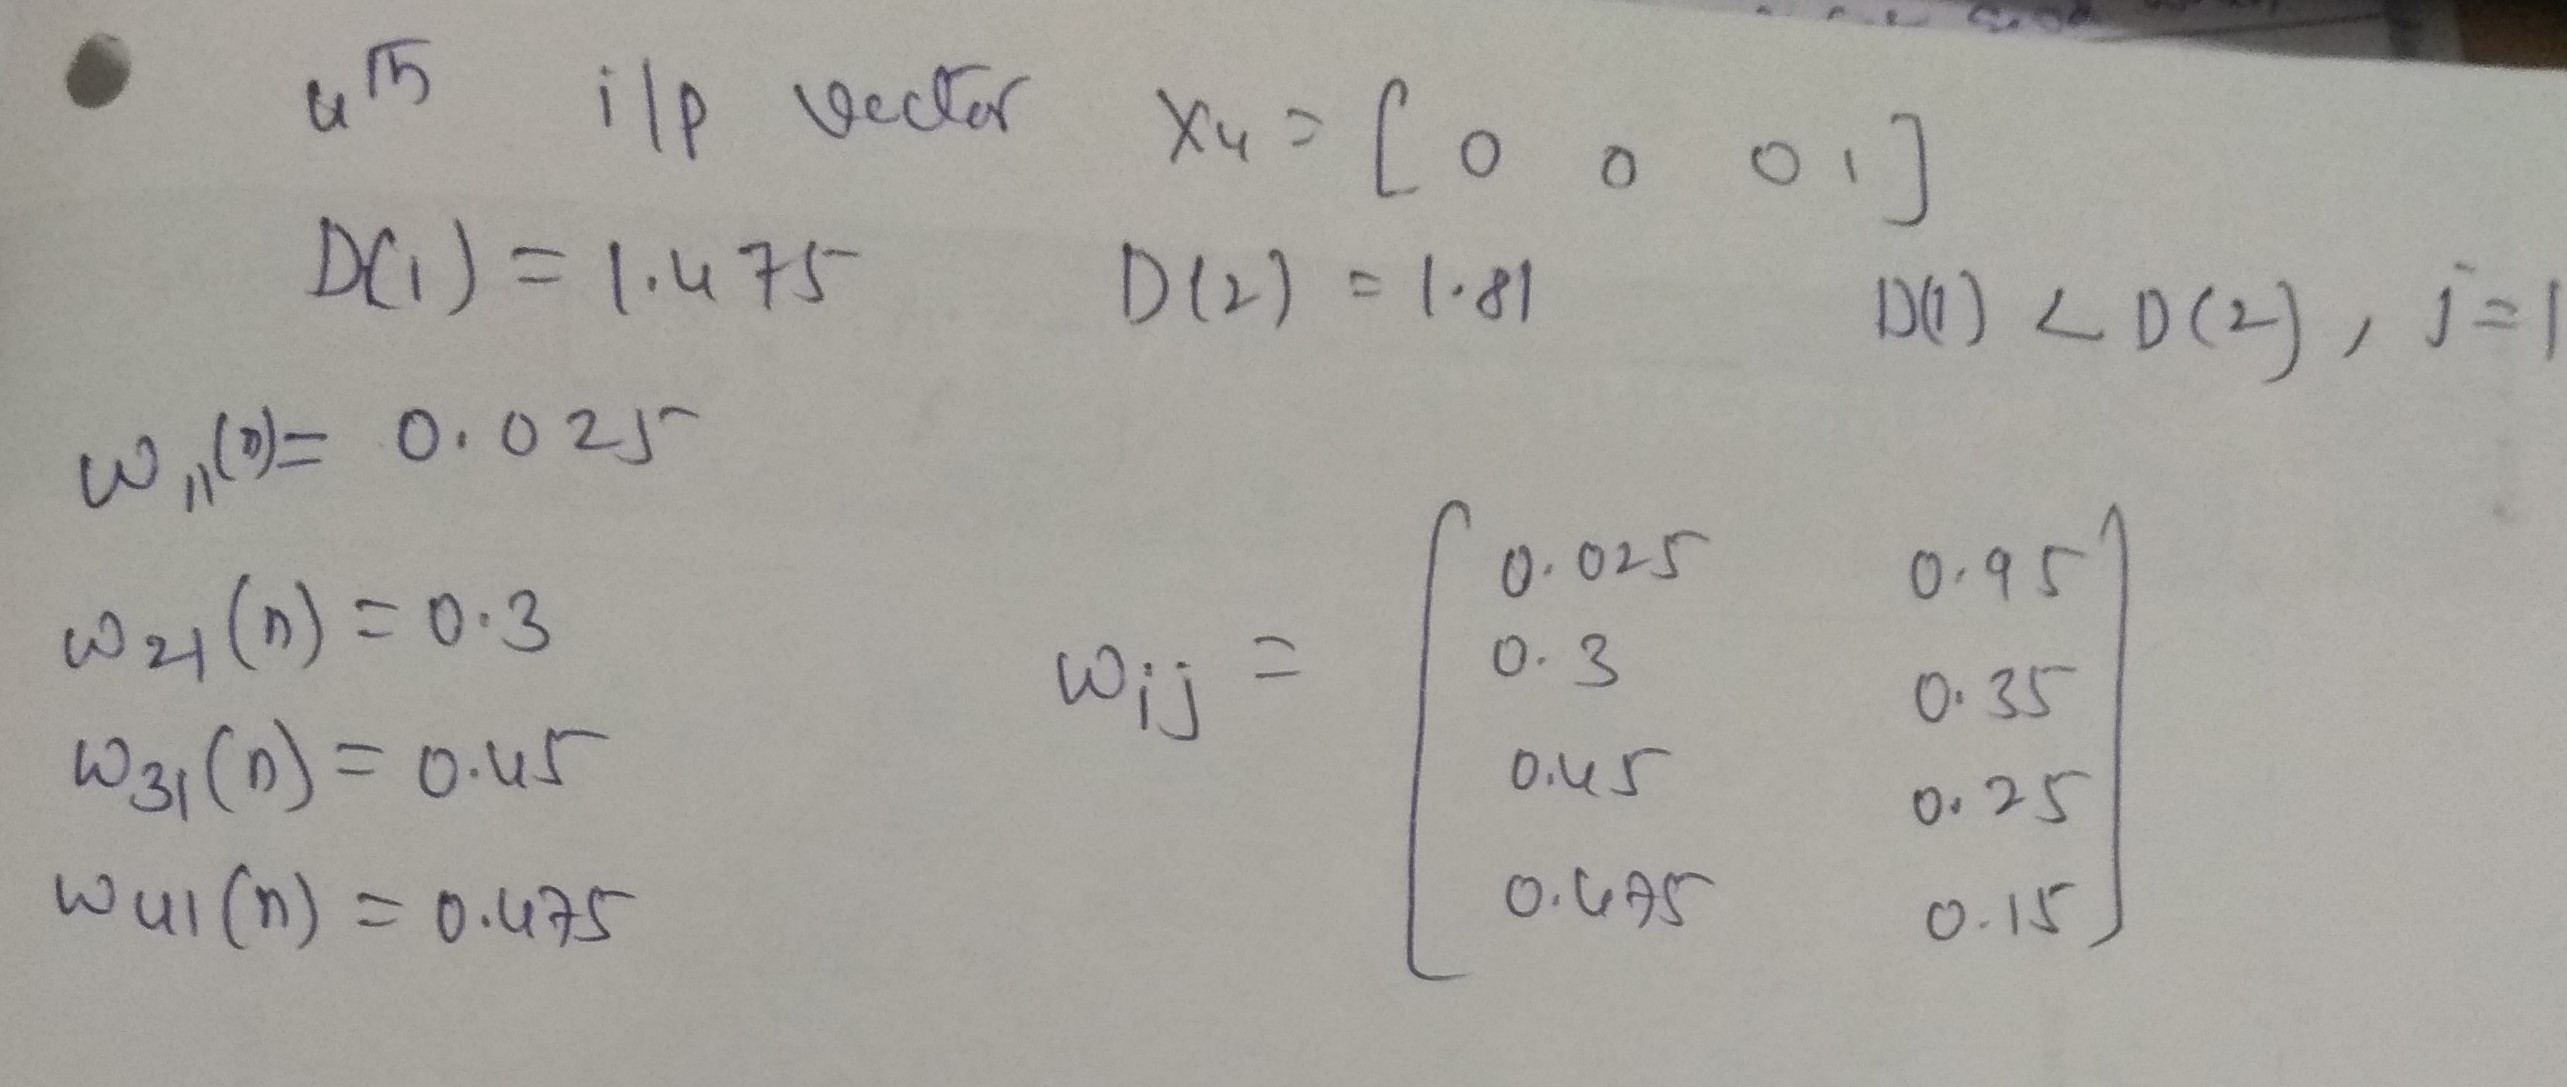 4th i/p vector X4 = [0 0 0 1]
D(1) = 1.475 D(2) = 1.81 D(1) < D(2), j=1
w11(n) = 0.025
w21(n) = 0.3
w31(n) = 0.45
w41(n) = 0.475
wij = [0.025 0.95
0.3 0.35
0.45 0.25
0.475 0.15]